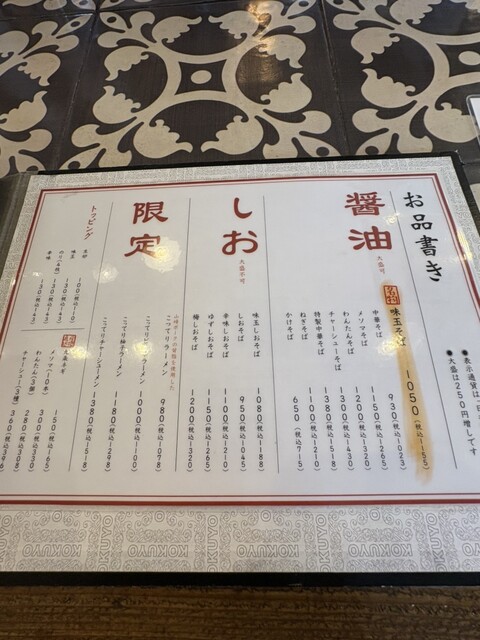 お品書き
●表示通貨は
●大盛は250円増しです
醤油
大盛可
味玉そば 1050(税込1155)
中華そば 930(税込1023)
メンマそば 1150(税込1265)
わんたんそば 1200(税込1320)
チャーシューそば 1300(税込1430)
特製中華そば 1380(税込1518)
ねぎそば 1100(税込1210)
かけそば 650(税込715)
しお
大盛不可
味玉しおそば 1080(税込1188)
しおそば 950(税込1045)
辛味しおそば 1100(税込1210)
ゆずしおそば 1150(税込1265)
梅しおそば 1200(税込1320)
限定
の背脂を使用した
こってりラーメン 980(税込1078)
ラーメン 1000(税込1100)
こってり柚子ラーメン 1180(税込1298)
こってりチャーシューメン 1380(税込1518)
トッピング
100(税込110)
味玉 130(税込143)
のり(4枚) 130(税込143)
辛味 130(税込143)
九条ネギ 150(税込165)
メンマ(10本)
わんたん(3個) 300(税込330)
チャーシュー(3種) 280(税込308)
360(税込396)
KOKUYO